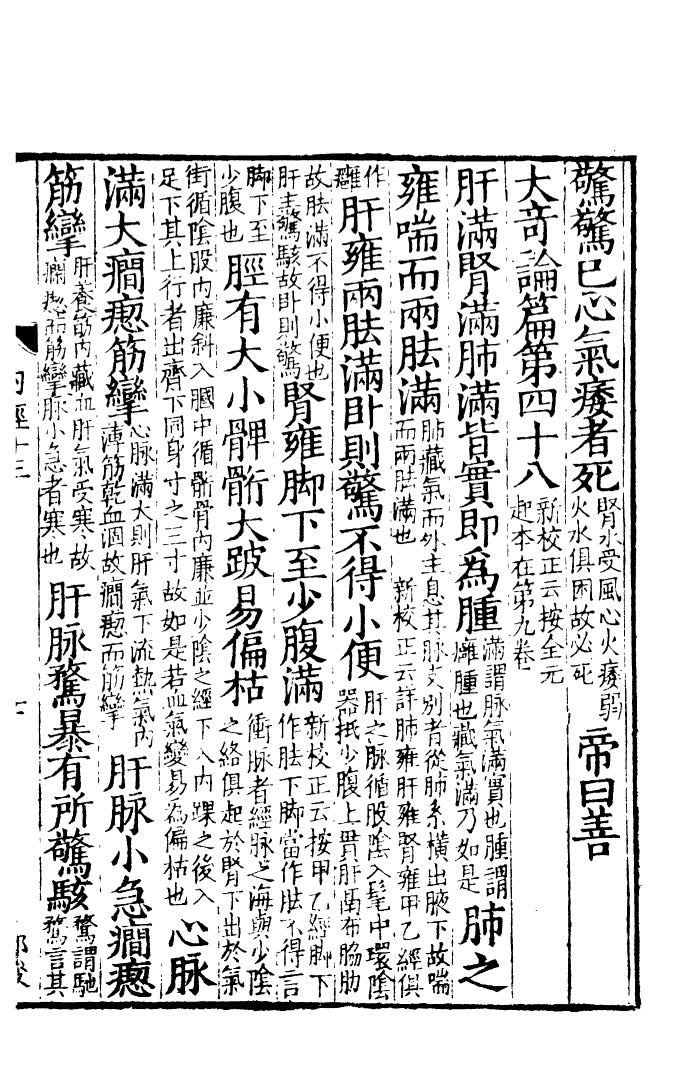 驚驚已心氣痿者死腎水受風心火痿弱火水俱困故必死帝曰善
大奇論篇第四十八新校正云按全元起本在第九卷
肝滿腎滿肺滿皆實即爲腫滿謂脉氣滿實也腫謂癰腫也藏氣滿乃如是肺之
雍喘而兩胠滿肺藏氣而外主息其脉支別者從肺系橫出腋下故喘而兩胠滿也　新校正云詳肺雍肝雍腎雍甲乙經俱
作癰肝雍兩胠滿卧則驚不得小便肝之脉循股陰入髦中環陰器抵少腹上貫肝鬲布脇肋
故胠滿不得小便也肝主驚駭故卧則驚腎雍脚下至少腹滿新校正云按甲乙經脚下作胠下脚當作胠不得言
脚下至少腹也脛有大小髀䯒大跛易偏枯衝脉者經脉之海與少陰之絡俱起於腎下出於氣
街循陰股內廉斜入膕中循䯒骨內廉並少陰之經下入內踝之後入足下其上行者出齊下同身寸之三寸故如是若血氣變易爲偏枯也心脉
滿大癎瘛筋攣心脉滿大則肝氣下流熱氣內薄筋乾血涸故癎瘛而筋攣肝脉小急癎瘛
筋攣肝養筋內藏血肝氣受寒故癎瘛而筋攣脉小急者寒也肝脉騖暴有所驚駭騖謂馳騖言其
內經十三
十